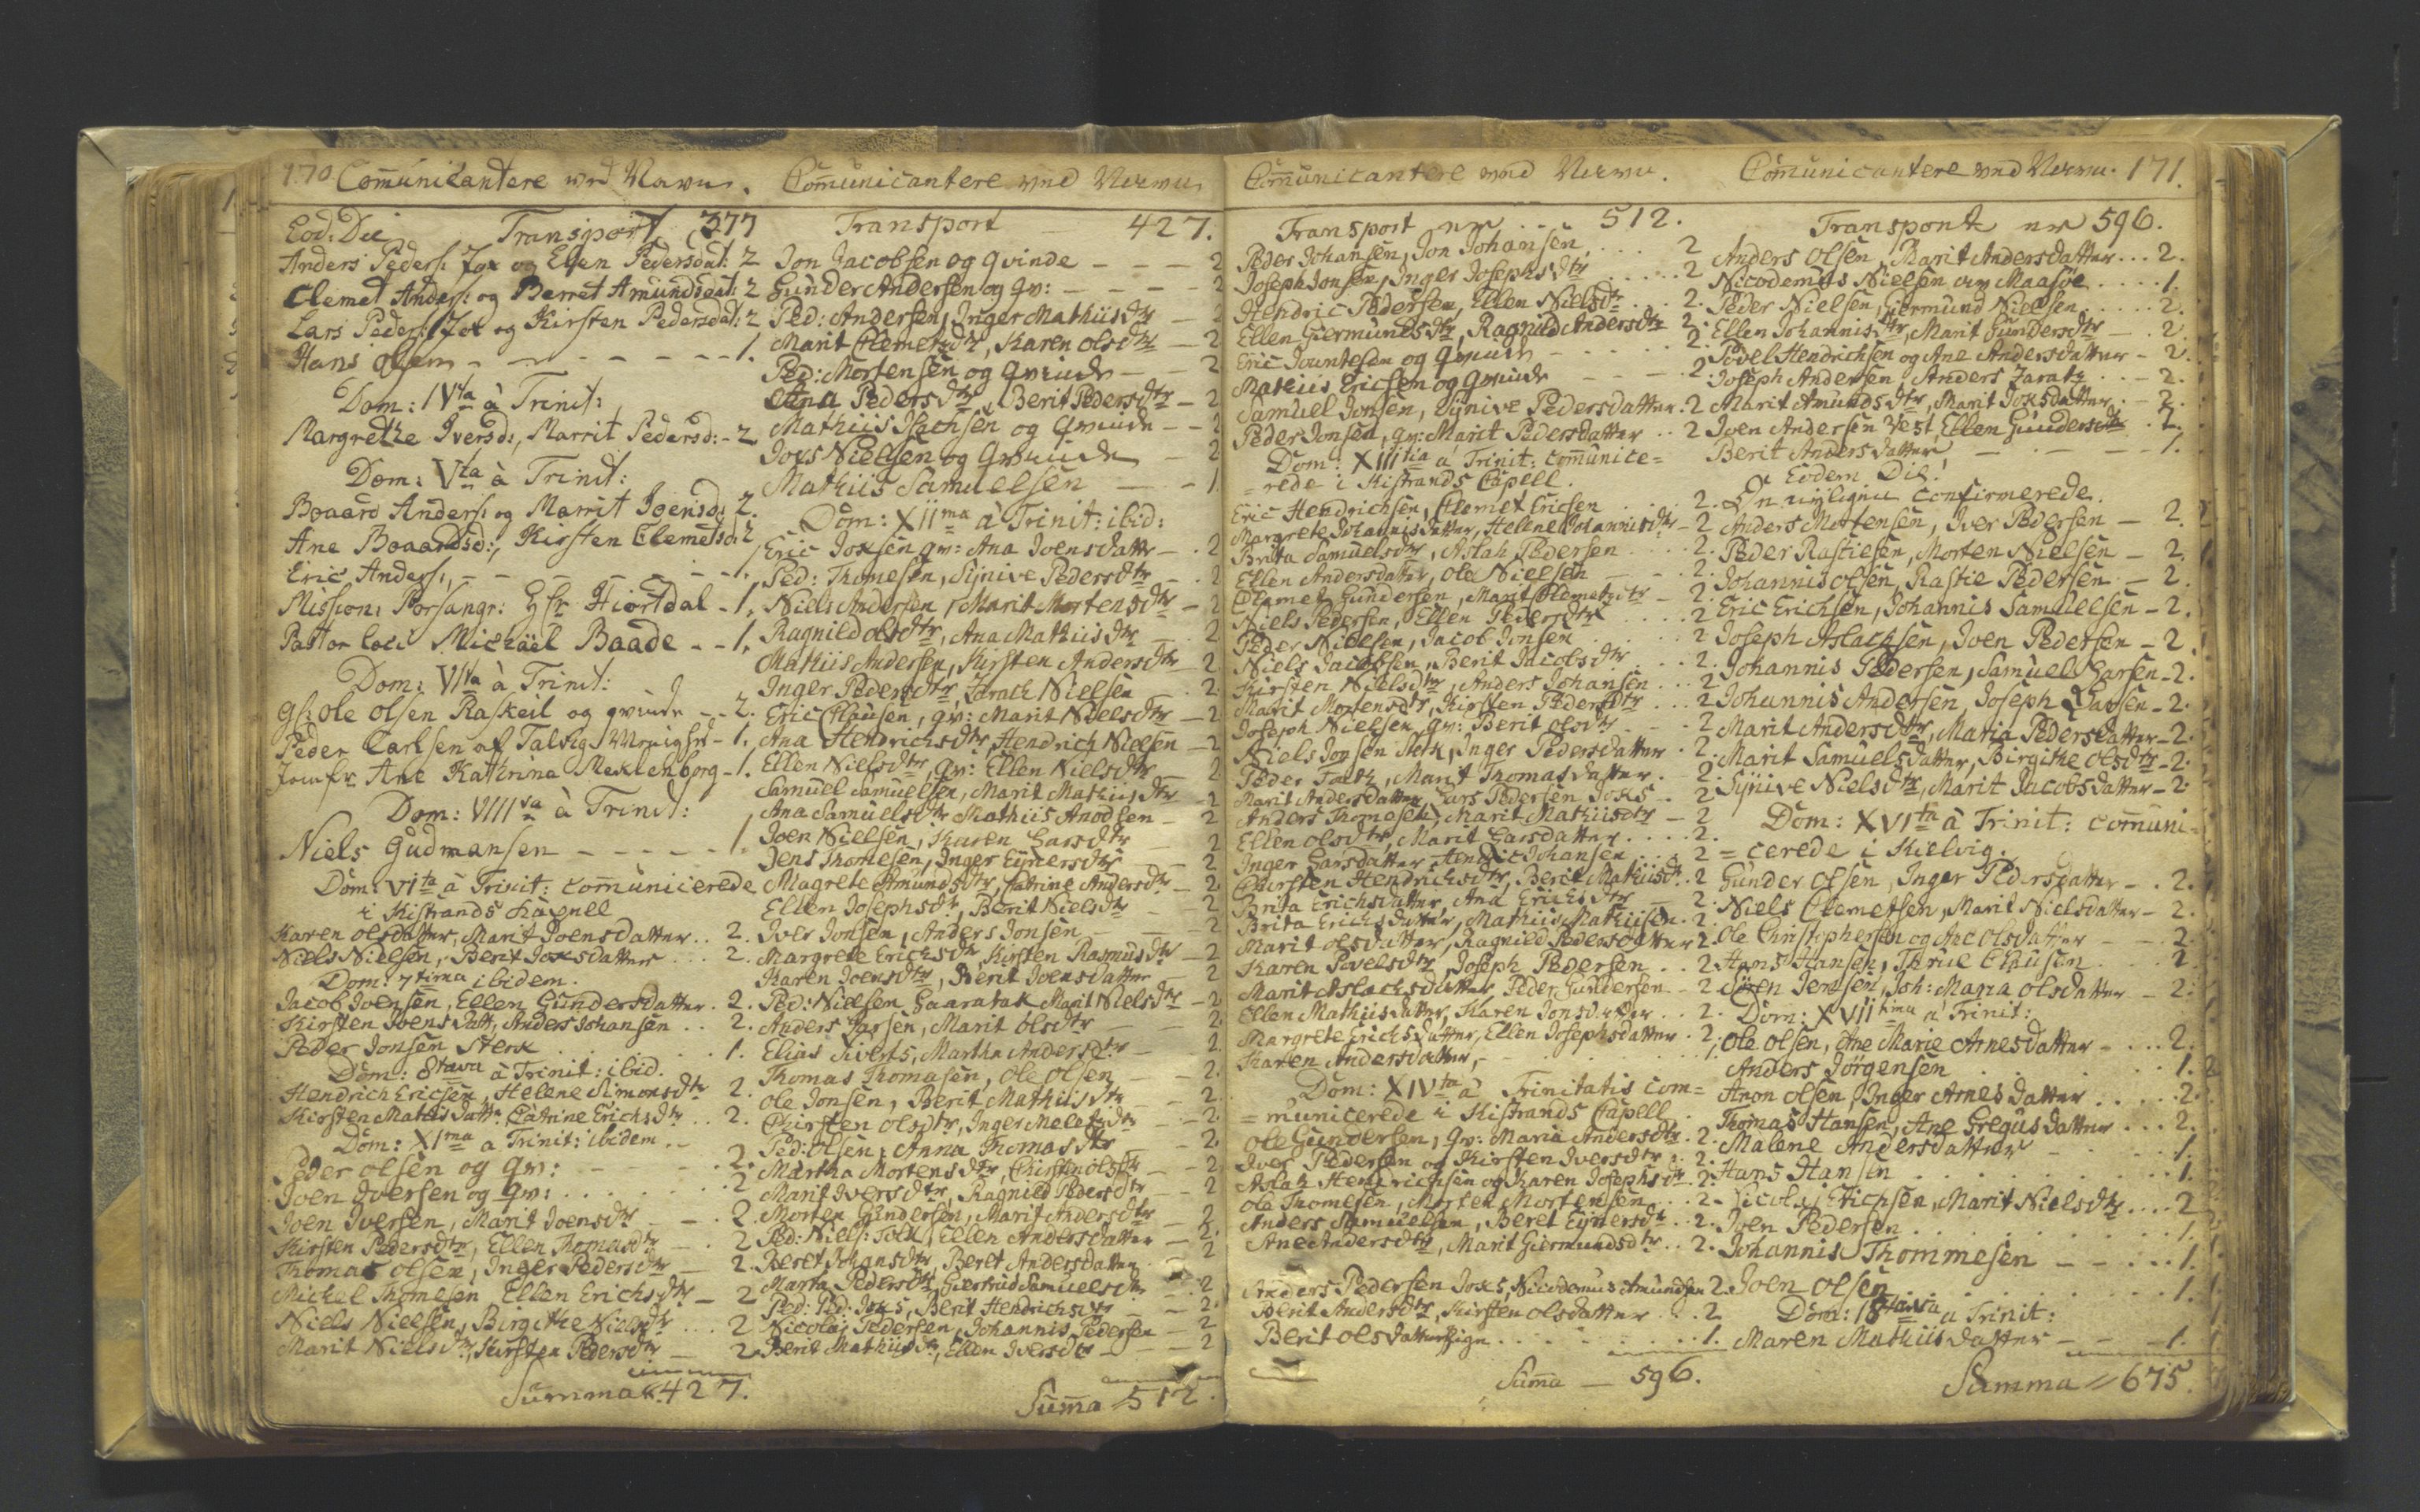 170 Comunicantere ved Navn.
Eod: Die Transport 377
Anders Peders: Jox og Ellen Pedersdat: 2
Clemet Anders: og Berret Amundsdat: 2
Lars Peders: Jox og Kirsten Pedersdat: 2
Hans olsen - - - - - - - 1.
Dom: IVta à Trinit:
Margrethe Iversd:, Marrit Pedersd: - 2
Dom: Vta à Trinit:
Boaard Anders: og Marrit Joensd: 2.
Ane Boaardsd:, Kirsten Clemetsd: 2
Eric Anders: - - - - - - 1.
Mission: Porsangr: Hr Hiortdal - 1.
Pastor loci Michäel Baade - - 1.
Dom: VIta à Trinit:
Ole olsen Raskeil og qvinde - - 2.
Peder Carlsen af Talvig - 1.
Jomfr Ane Kathrina Meklenborg - 1.
Dom: VIIIva à Trinit:
Niels Gudmansen - - - - - 1.
Dom: VIta à Trinit: comunicerede
i Kistrands
Karen olsdatter, Marit Joensdatter . . 2.
Niels Nielsen, Berit Joxsdatter . . . 2.
Dom: 7tima ibidem.
Jacob Joensen, Ellen Gundersdatter . 2.
Kirsten Joensdatt, Anders Johansen . . 2.
Peder Jonsen Sterk . . . . . . 1.
Dom: 8tava à Trinit: ibid.
Hendrich Ericsen, Helene Simonsdtr 2.
Kirsten Mathisdattr Catrine Erichsdtr . . 2.
Dom: XIma a Trinit: ibidem . -
Peder olsen og qv: - - . 2.
Joen Iversen og qv: . . . . . . 2
Joen Iversen, Marit Joensdtr - - . 2.
Kirsten Pedersdtr, Ellen Thomasdtr - . 2
Thomas olsen, Inger Pedersdtr - 2.
Michel Thomesen Ellen Erichsdtr - 2
Niels Nielsen, Birgithe Nielsdtr . . . 2
Marit Nielsdtr, Kirsten Pedersdtr - 2
Summa 427.
Comunicantere ved Navn
Transport - 427.
Jon Jacobsen og qvinde - - - - 2
Gunder Andersen og qv: - - - - 2
Ped: Andersen, Inger Mathiisdtr - 2
Marit Clemetsdtr, Karen olsdtr - 2
Ped: Mortensen og qvinde - - 2
Ana Pedersdtr, Berit Pedersdtr - 2
Mathiis Isachsen og qvinde - - 2
Joxs Nielsen og qvinde - 2
Mathiis Samuelsen - - 1
Dom: XIIma à Trinit: ibid:
Eric Joxsen qv: Ana Joensdattr - . 2
Ped: Thomesen, Synive Pedersdtr - . 2
Niels Andersen, Marit Mortensdtr - 2
Ragnild olsdtr, Ana Mathiisdtr - 2
Mathiis Andersen, Kirsten Andersdtr - 2
Inger Pedersdtr, Zarach Nielsen . 2.
Eric Clausen, qv: Marit Nielsdtr - 2
Ana Hendrichsdtr Hendrich Nielsen - 2
Ellen Nielsdtr qv: Ellen Nielsdtr 2
Samuel Samuelsen, Marit Mathiisdtr - 2
Ana Samuelsdtr Mathiis Anodsen - 2
Joen Nielsen, Karen Larsdtr - 2
Jens Thomesen, Inger Eynersdtr - 2
Magrete Amundsdtr, Catrine Andersdtr - 2
Ellen Josephsdtr, Berit Nielsdtr - 2
Iver Jonsen, Anders Jonsen - - 2
Margrete Erichsdtr Kirsten Rasmusdtr - 2
Karen Joensdtr, Berit Joensdatter 2
Ped: Nielsen Marit Nielsdtr - 2
Anders Larsen, Marit olsdtr - 2.
Elias Siverts, Martha Andersdtr - 2.
Thomas Thomasen, Ole olsen - - 2.
Ole Jonsen, Berit Mathiisdtr - 2
Chirsten olsdtr, Inger - - 2.
Ped: olsen, Anna Thomasdtr - 2.
Martha Mortensdtr, Chirsten olsdtr - - 2
Marit Iversdtr, Ragnild Pedersdtr - 2
Morten Gundersen, Marit Andersdtr - 2
Ped: Niels: Ellen Andersdatter - 2.
Beret Johansdtr, Beret Andersdatter 2
Marta Pedersdtr, Giertrud Samuelsdtr 2
Ped: Ped: Joxs, Berit Hendrichsdtr - - 2.
Nicolaj Pedersen, Johannis Pedersen - 2
Berit Mathiisdtr, Ellen Iversdtr - - 2
Suma 512.
Comunicantere ved Navn.
Transport nr . . 512.
Peder Johansen, Jon Johansen . . . 2
Joseph Jonsen, Inger Josephsdtr . . . . . 2
Hendric Pedersen, Ellen Nielsdtr . . . 2.
Ellen Giermundsdtr, Ragnild Andersdtr 2.
Eric Jountesen og qvinde - . . . . . 2.
Mathiis Ericsen og qvinde - - - . 2.
Samuel Jonsen, Synive Pedersdatter. 2
Peder Jonsen, qv: Marit Pedersdatter . . 2
Dom: XIIItia à Trinit: comunice=
=rede i Kistrands Capell.
Eric Hendrichsen, Clemet Ericsen . 2.
Margrete Johannisdatter, Helene Johannisdtr - 2
Brita Samuelsdtr, Aslak Pedersen . . . . 2.
Ellen Andersdatter, Ole Nielsen - - . 2.
Clemet Gundersen, Marit Clemetsdtr - 2.
Niels Pedersen, Ellen Pedersdtr . . . . 2
Peder Nielsen, Jacob Jonsen . . . 2
Niels Jacobsen, Berit Jacobsdtr . . . 2.
Kirsten Nielsdtr, Anders Johansen . . . 2
Marit Mortensdtr, Kirsten Pedersdtr . . . 2
Joseph Nielsen, qv: Berit olsdtr - - - 2
Niels Jonsen Sterk, Inger Pedersdatter . 2.
Peder Marit Thomasdatter . 2.
Marit Andersdatter, Lars Pedersen Joxs - . 2
Anders Thomesen, Marit Mathiisdtr - 2
Ellen olsdtr, Marit Larsdatter . . . . 2.
Inger Larsdatter Hendric Johansen . . . 2
Chirsten Hendrichsdtr, Berit Mathiisdtr . 2
Brita Erichsdatter, Ana Erichsdtr - 2.
Brita Erichsdatter, Mathiis Mathiisen . 2.
Marit olsdatter, Ragnild Pedersdatter 2.
Karen Povelsdtr, Joseph Pedersen . . 2
Marit Aslachsdatter, Peder Gundersen - 2
Ellen Mathiisdatter, Karen Jonsdatter . . 2.
Margrete Erichsdatter, Ellen Josephsdatter . 2.
Karen Andersdatter, - - - . . . . 1.
Dom: XIVta à Trinitatis com=
=municerede i Kistrands Capell.
Ole Gundersen, qv: Maria Andersdtr . 2.
Iver Pedersen og Kirsten Iversdtr . . 2.
Aslak Hendrichsen og Karen Josephsdtr 2.
Ole Thomesen, Morten Mortensen . . . 2
Anders Samuelsen, Beret Eynersdtr . . 2.
Ane Andersdtr, Marit Giermundsdtr . . 2.
Anders Pedersen Joxs, Nicodemus Amundsen 2.
Berit Andersdtr, Kirsten olsdatter . . 2
Berit olsdatter . . . . . . . 1.
Suma - 596.
Comunicantere ved Navn. 171.
Transport nr 596.
Anders olsen, Marit Andersdatter . . . 2.
Nicodemus Nielsen av Maasöe . . . . 1.
Peder Nielsen, Giermund Nielsen . . . . . 2.
Ellen Johannisdtr, Marit Gundersdtr - - 2.
Povel Hendrichsen og Ane Andersdatter - 2.
Joseph Andersen, Anders Zarak . . . - 2.
Marit Amundsdtr, Marit Joxsdatter . - 2.
Joen Andersen Vest, Ellen Gundersdtr . 2.
Berit Andersdatter - - - - - 1.
Eodem Die!
confirmerede.
Anders Mortensen, Iver Pedersen - 2.
Peder Rastiesen, Morten Nielsen - 2.
Johannis olsen, Rastie Pedersen - 2.
Eric Erichsen, Johannis Samuelsen - 2.
Joseph Aslachsen, Joen Pedersen - 2.
Johannis Pedersen, Samuel Larsen - 2.
Johannis Andersen, Joseph Larsen - 2.
Marit Andersdtr, Maria Pedersdatter - 2.
Marit Samuelsdatter, Birgithe olsdtr - 2.
Synive Nielsdtr, Marit Jacobsdatter - 2.
Dom: XVIta à Trinit: comuni=
=cerede i Kielvig.
Gunder olsen, Inger Pedersdatter - . 2.
Niels Clemetsen, Marit Nielsdatter - 2.
Ole Christophersen og Ane olsdatter - - 2.
Hans Hansen, Thrue Clausen . . . 2
Sören Jensen, Joh: Maria olsdatter - 2.
Dom: XVIItima a Trinit:
Ole olsen, Ane Marie Arnesdatter - . . . 2.
Anders Jörgensen . . . . . 1.
Aron olsen, Inger Arnesdatter . . . . 2.
Thomas Hansen, Ane Gregusdatter . . . 2.
Malene Andersdatter - . . . 1.
Hans Hansen . . . . . . . 1.
Nicolaj Erichsen, Marit Nielsdtr . . . . 2
Joen Pedersen . . . . . . . . 1.
Johannis Thommesen - - . . . 1.
Joen olsen . . . . . . . 1.
Dom: 18tava a Trinit:
Maren Mathiisdatter - - - 1.
Summa 675.